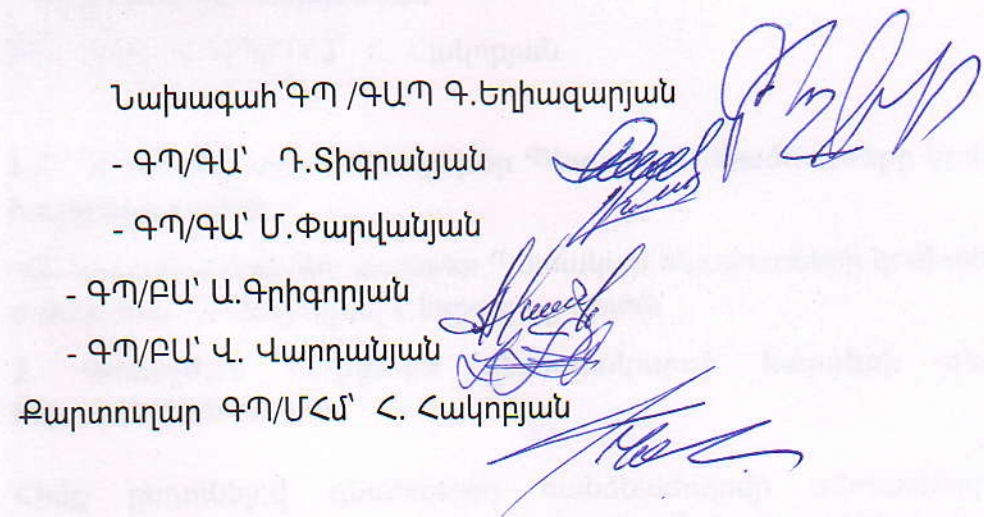 Նախագահ՝ԳՊ /ԳԱՊ Գ.Եղիազարյան
- ԳՊ/ԳԱ՝ Դ.Տիգրանյան
- ԳՊ/ԳԱ՝ Մ.Փարվանյան
- ԳՊ/ԲԱ՝ Ա.Գրիգորյան
- ԳՊ/ԲԱ՝ Վ. Վարդանյան
Քարտուղար ԳՊ/ՄՀմ՝ Հ. Հակոբյան